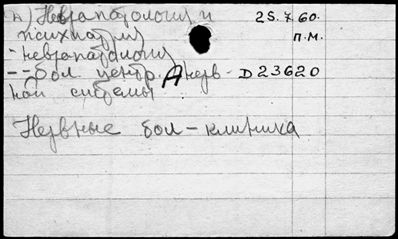 п) Невропатология и 25.7.60.
психиатрия п.м.
- невропатология
-- бол. центр. нерв- D23620
ной системы
Нервные бол - клиника